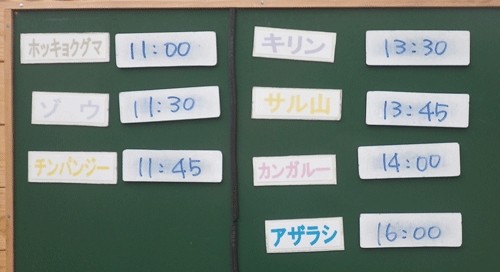 ホッキョクグマ 11:00
ゾウ 11:30
チンパンジー 11:45
キリン 13:30
サル山 13:45
カンガルー 14:00
アザラシ 16:00